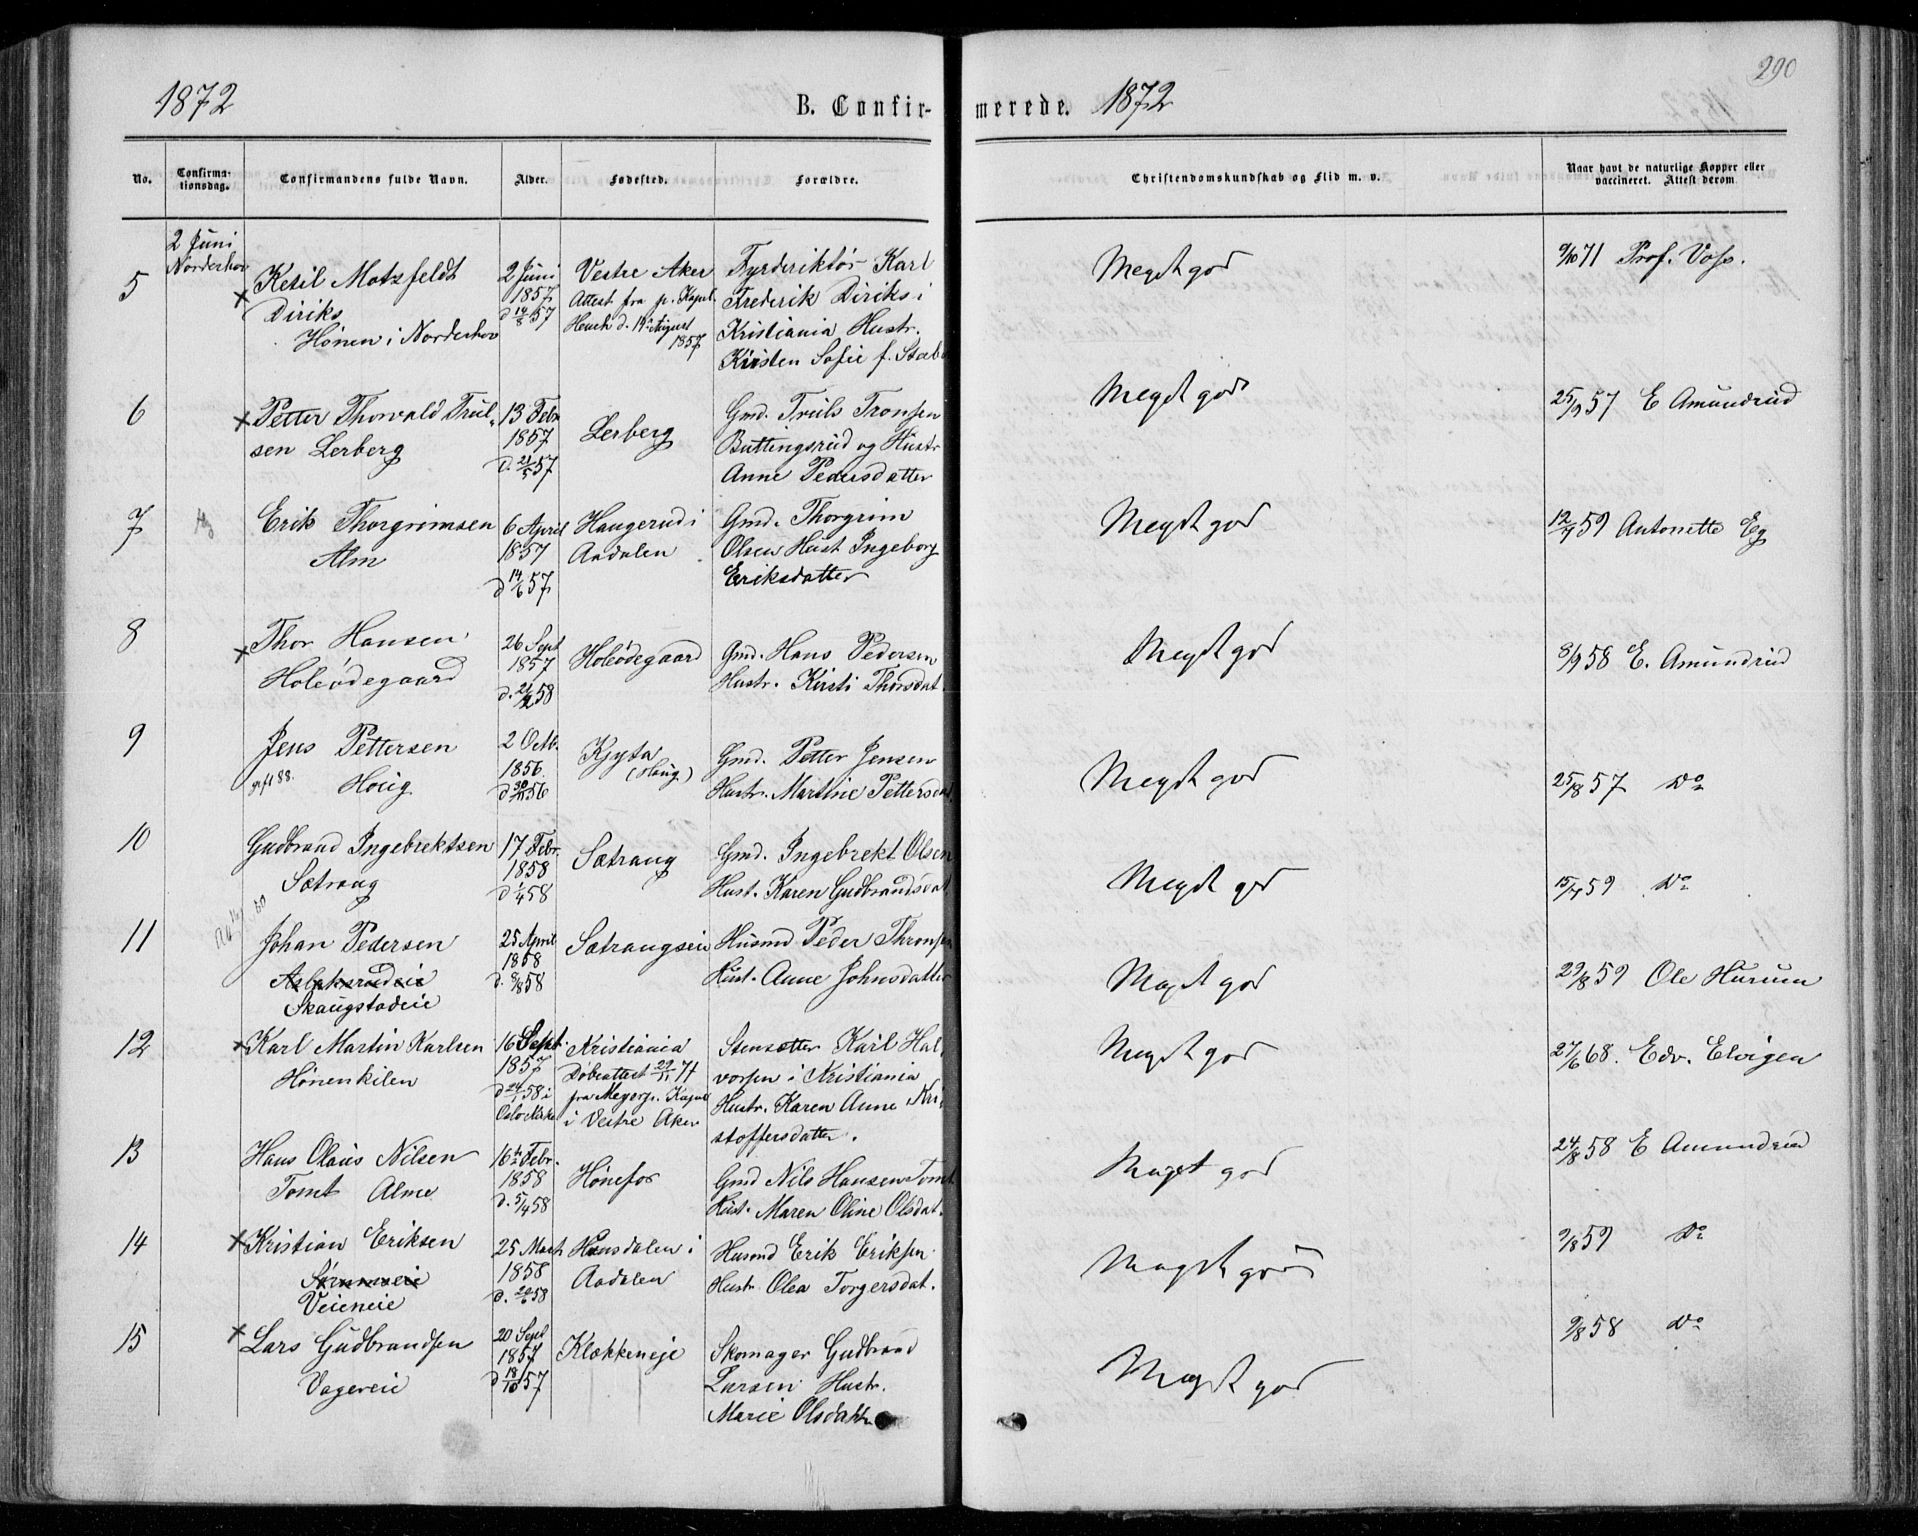 290
1872 B. Confir- merede. 1872
No. Confirma-tionsdag. Confirmandens fulde Navn. Alder. Fødested. Forældre. Christendomskundskab og Flid m. v. Naar havt de naturlige Kopper eller vaccineret. Attest derom
2 Juni
Norderhov
5 × Ketil Motzfeldt 2 Juni Vestre Aker Fyrderiktør Karl Meget god 9/10 71 Prof. Voss.
Diriks 1857 Attest fra p. Kapel. Frederik Diriks i
Hønen i Norderhov d 14/8 57 Heuch d. 14 August 1857 Kristiania Hustr.
Kirsten Sofie f.
6 × Petter Thorvald Trul- 13 Febr Lerberg Gmd. Truls Tronsen Meget god 25/9 57 E Amundrud
sen Lerberg 1857 Buttingsrud og Hustr
d. 21/5 57 Anne Pedersdatter
7 Erik Thorgrimsen 6 April Haugerud i Gmd. Thorgrim Meget god 12/9 59 Antonette Eg
Alm 1857 Aadalen Olsen Hust Ingeborg
d 14/6 57 Eriksdatter
8 × Thor Hansen 26 Sept Holeødegaard Gmd. Hans Pedersen Meget god 8/9 58 E. Amundrud
Holeødegaard 1857 Hustr. Kirsti Thorsdat.
d. 21/2 58
9 Jens Pettersen 2 Octb. Kjyta Gmd. Petter Jensen Meget god 25/8 57 Do
gift 88. Houg 1856. (Houg) Hustr. Martine Pettersdat
d 30/11 56
10 Gudbrand Ingebrektsen 17 Febr. Sætrang Gmd. Ingebrekt Olsen Meget god 15/9 59 Do
Sætrang 1858 Hust. Karen Gudbrandsdat
d 1/4 58
11 Johan Pedersen 25 April Sætrangseie Husmd Peder Thronsen Meget god 29/8 59 Ole Hurum
Aslaksrudeie 1858 Hust. Anne Johnsdatter
Skaugstadeie d. 8/8 58
12 × Karl Martin Karlsen 16 Sept. Kristiania Stensætter Karl Hal- Meget god 27/6 68. Edv. Elvigen
Hønenkilen 1857 Døbeattest 29/11 71 vorsen i Kristiania
d 24/1 58 i fra Meyer p. Kapel Hustr. Karen Anne Kri-
Oslo Kirke i Vestre Aker stoffersdatter.
13 Hans Olaus Nilsen 16 Febr. Hønefos Gmd Nils Hansen Tomt Meget god 24/8 58 E Amundrud
Tomt Alme 1858 Hust. Maren Oline Olsdat.
d. 5/4 58
14 × Kristian Eriksen 25 Marts Hensdalen i Husmd Erik Eriksen Meget god 9/8 59 Do
1858 Aadalen Hustr Olea Torgersdat.
Veieneie d. 20/6 58
15 × Lars Gudbrandsen 20 Sept Klækkeneje Skomager Gudbrand Meget god 9/8 58 Do
Vagereie 1857 Larsen Hustr.
d 18/10 57 Marie Olsdattr